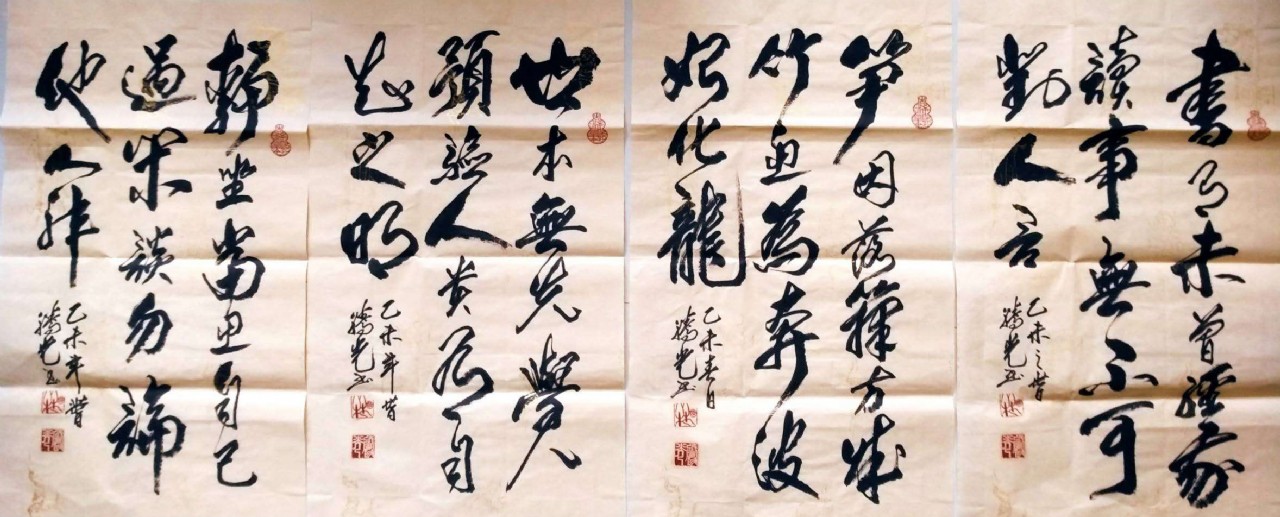 書有未曾經我
讀事無不可
對人言
乙未之
騰光書
笋因落籜方成
竹魚為奔波
始化龍
乙未春日
騰光書
世本無先覺之
預驗人貴有自
知之明
乙未年
騰光書
靜坐當思自己
過閑談勿論
他人非
乙未年
騰光書